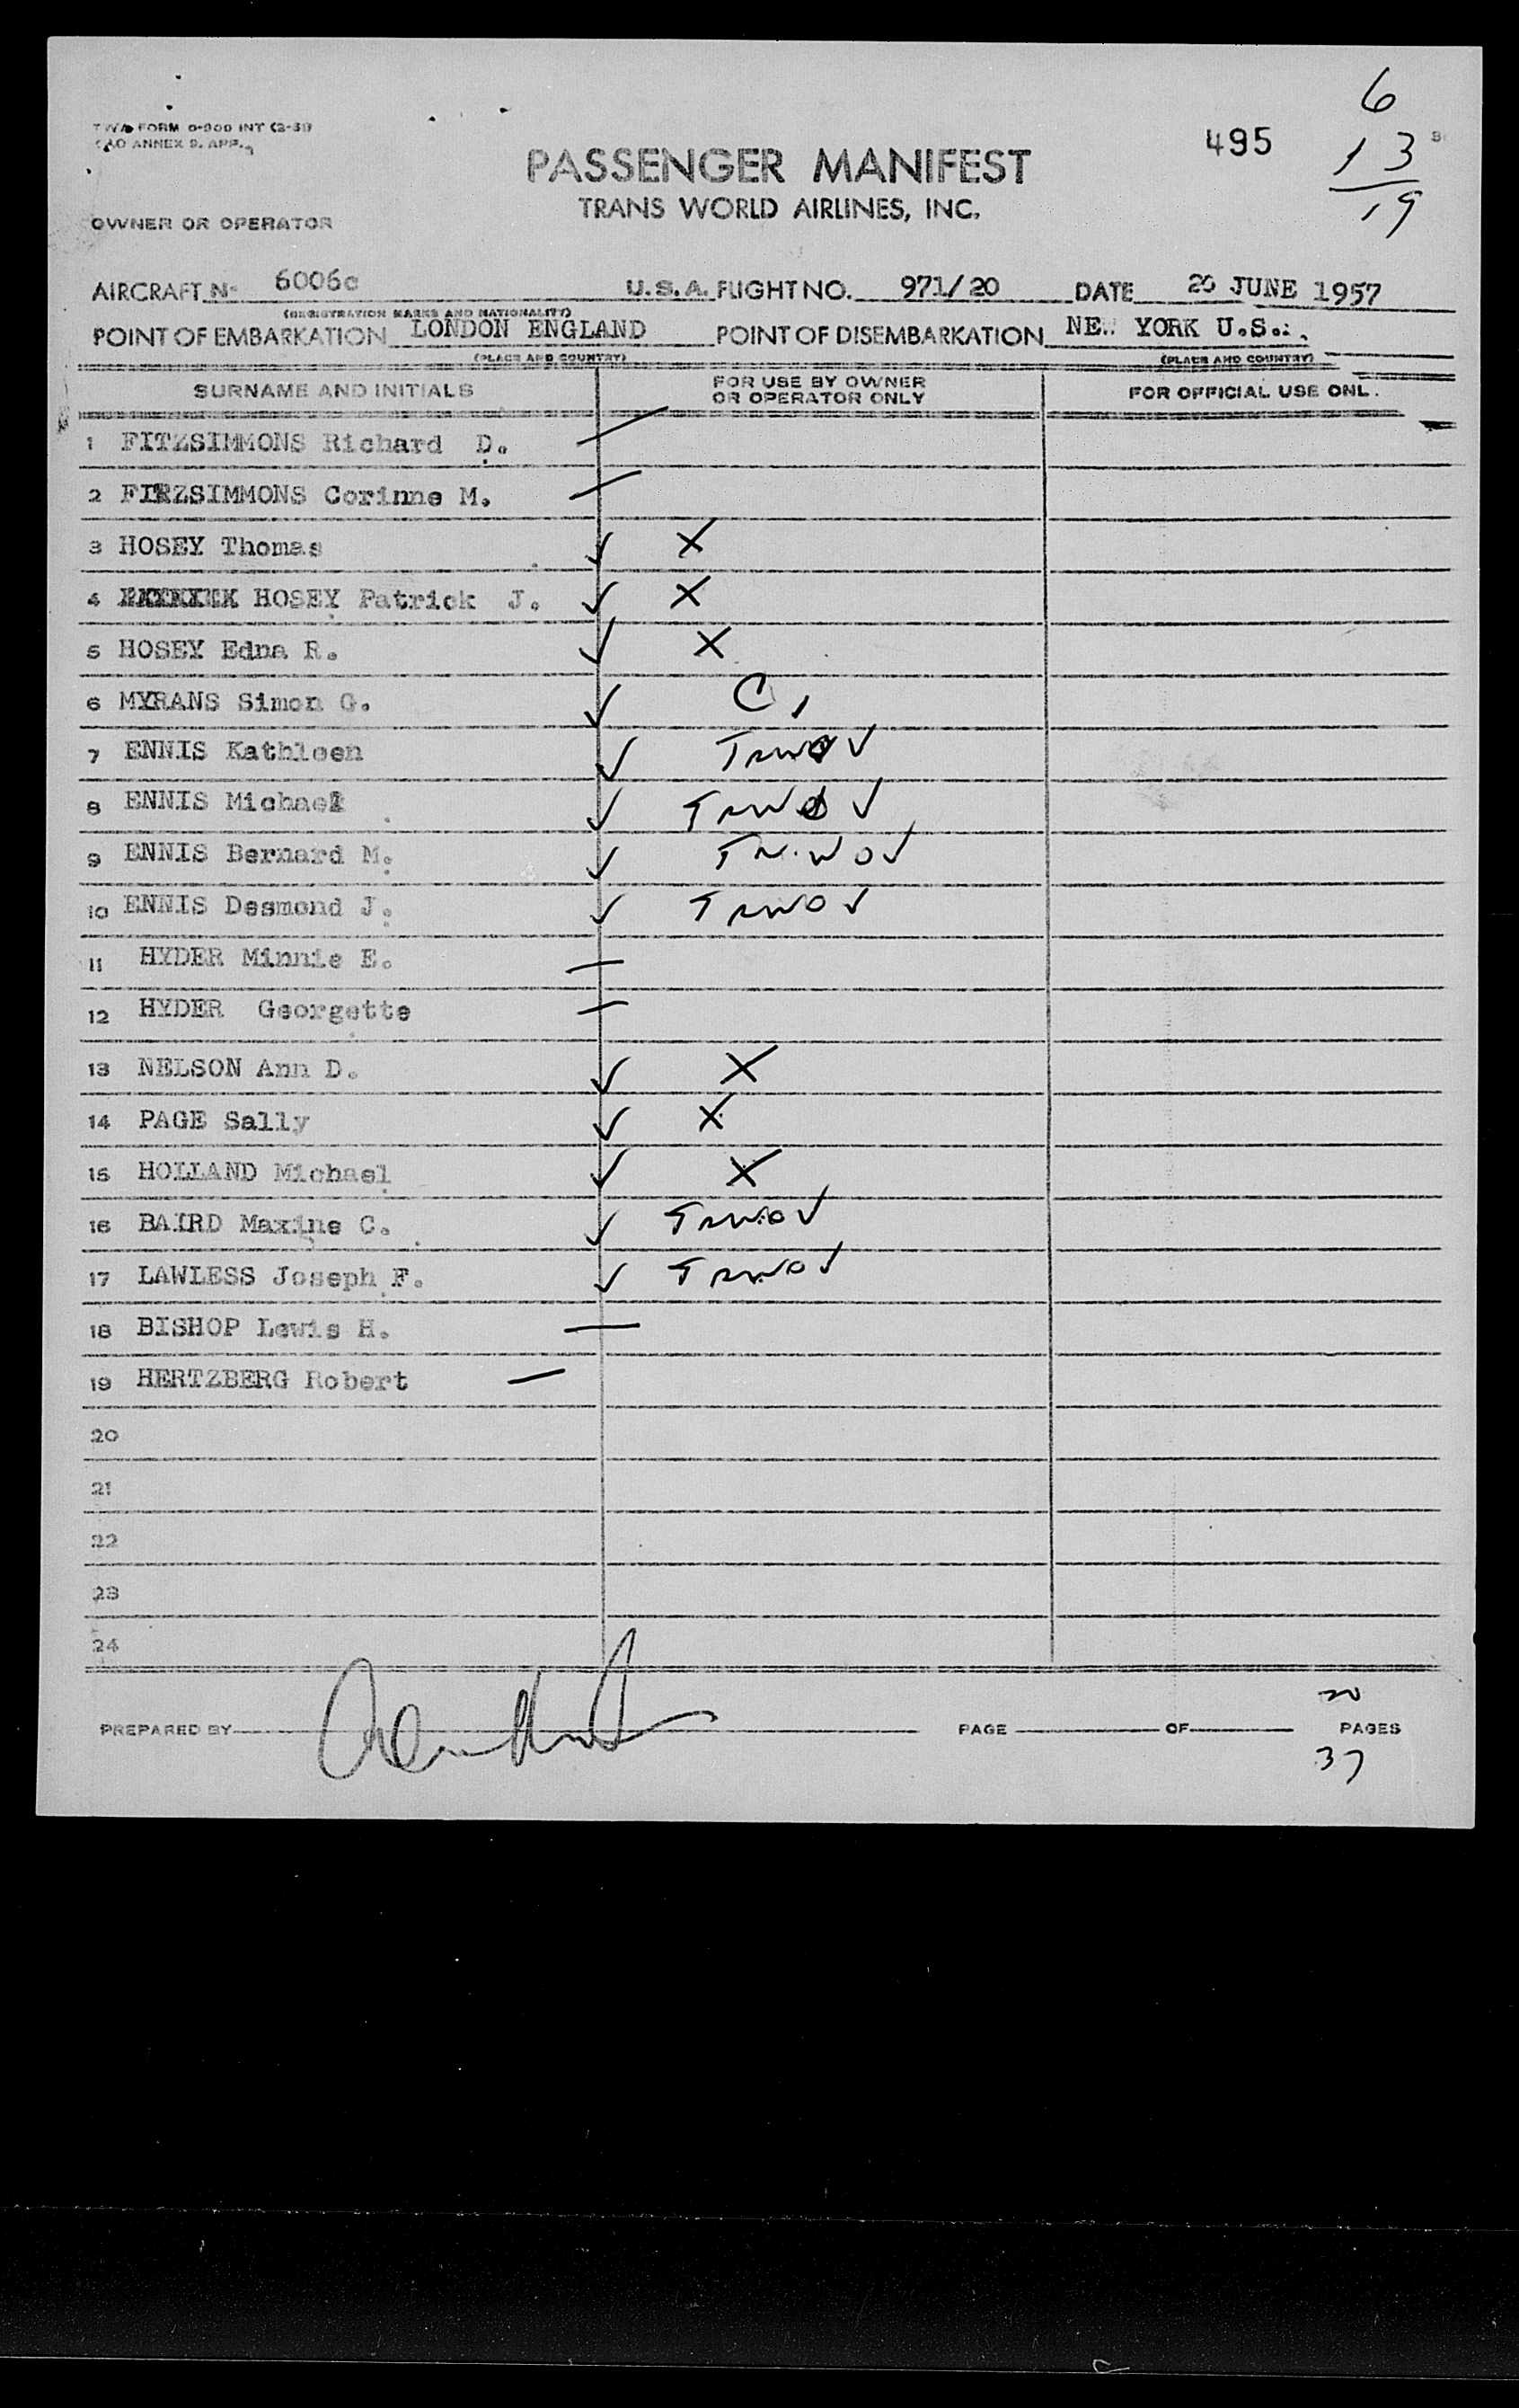 6
TWA FORM 0-900 INT (2-51)
ICAO ANNEX 9. APP.
495
13
PASSENGER MANIFEST
TRANS WORLD AIRLINES, INC.
19
OWNER OR OPERATOR
AIRCRAFT N- 6006c U.S.A. FLIGHT NO. 971/20 DATE 20 JUNE 1957
(REGISTRATION MARKS AND NATIONALITY)
POINT OF EMBARKATION LONDON ENGLAND POINT OF DISEMBARKATION NEW YORK U.S.A.
(PLACE AND COUNTRY) (PLACE AND COUNTRY)
SURNAME AND INITIALS FOR USE BY OWNER OR OPERATOR ONLY FOR OFFICIAL USE ONL.
1 FITZSIMMONS Richard D. —
2 FITZSIMMONS Corinne M. —
3 HOSEY Thomas ✓ X
4 HOSEY Patrick J. ✓ X
5 HOSEY Edna R. ✓ X
6 MYRANS Simon G. ✓ C
7 ENNIS Kathleen ✓ TRWO ✓
8 ENNIS Michael ✓ TRWO ✓
9 ENNIS Bernard M. ✓ TRWO ✓
10 ENNIS Desmond J. ✓ TRWO ✓
11 HYDER Minnie E. —
12 HYDER Georgette —
13 NELSON Ann D. ✓ X
14 PAGE Sally ✓ X
15 HOLLAND Michael ✓ X
16 BAIRD Maxine C. ✓ TRWO ✓
17 LAWLESS Joseph F. ✓ TRWO ✓
18 BISHOP Lewis H. —
19 HERTZBERG Robert —
20
21
22
23
24
20
PREPARED BY PAGE OF PAGES
37